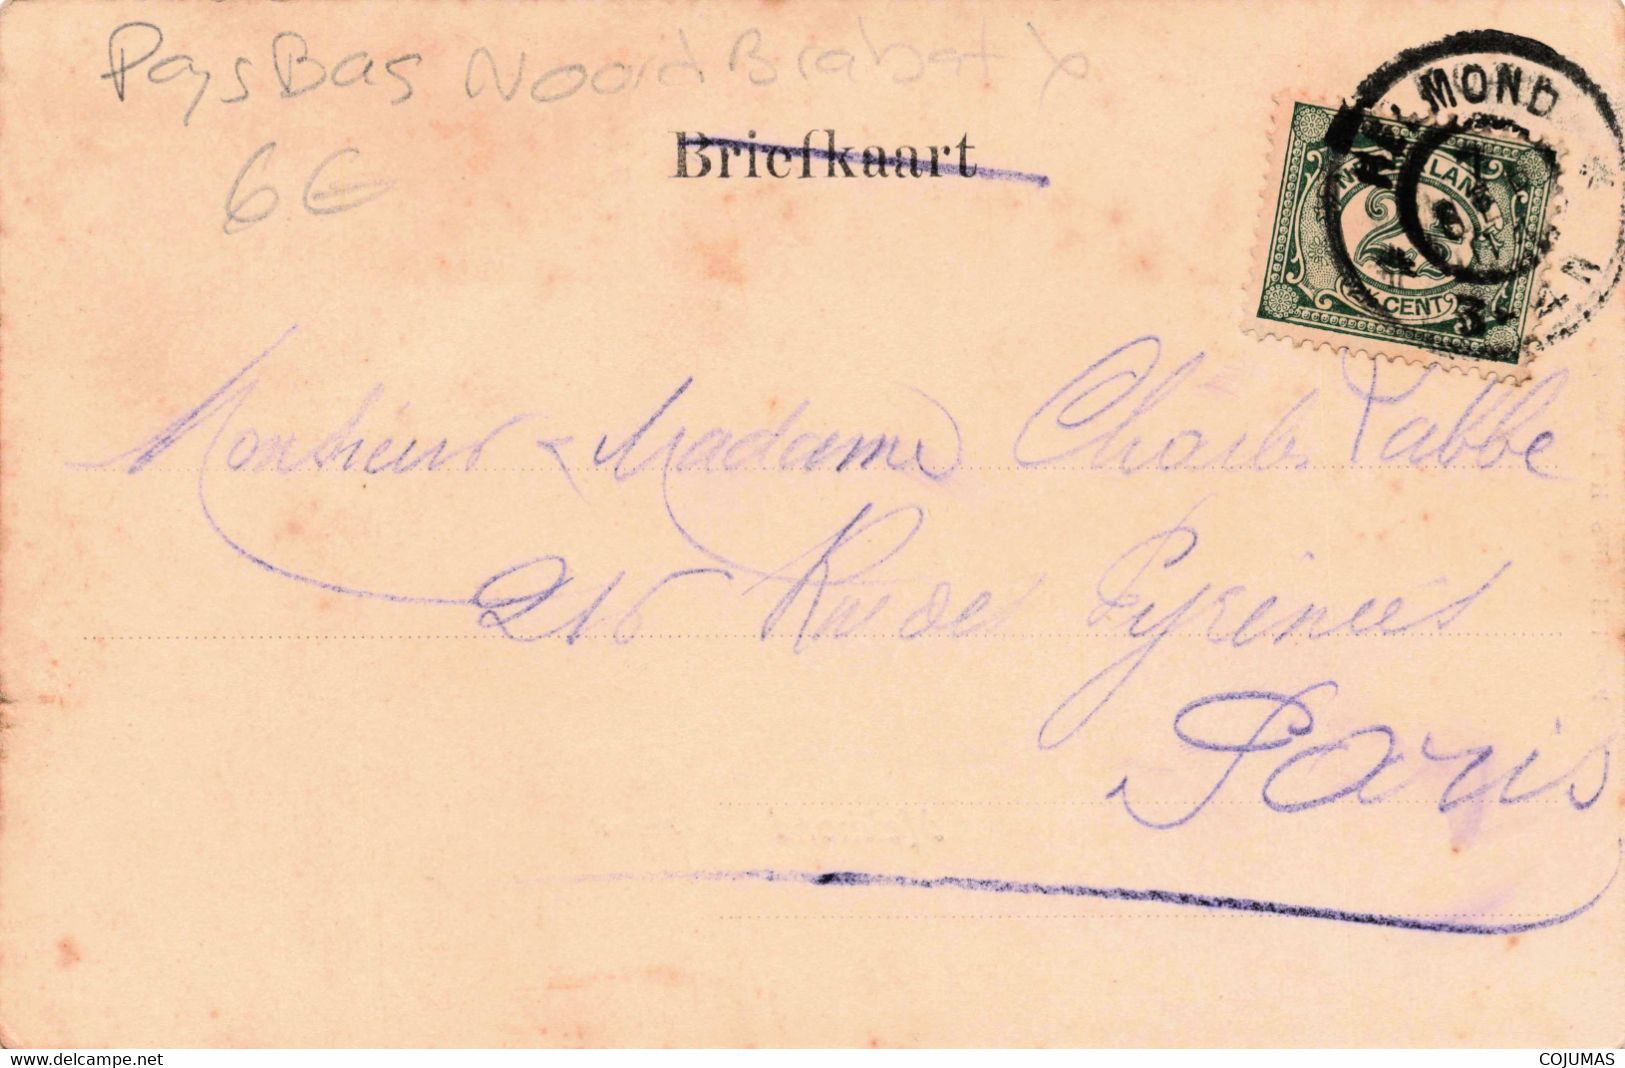 Pays Bas Noord Brabat
6€
Briefkaart
HELMOND
NEDERLAND
2½
2½ CENT
Monsieur & Madame Charles Tabbe
216 Rue des Pyrénées
Paris
www.delcampe.net
COJUMAS